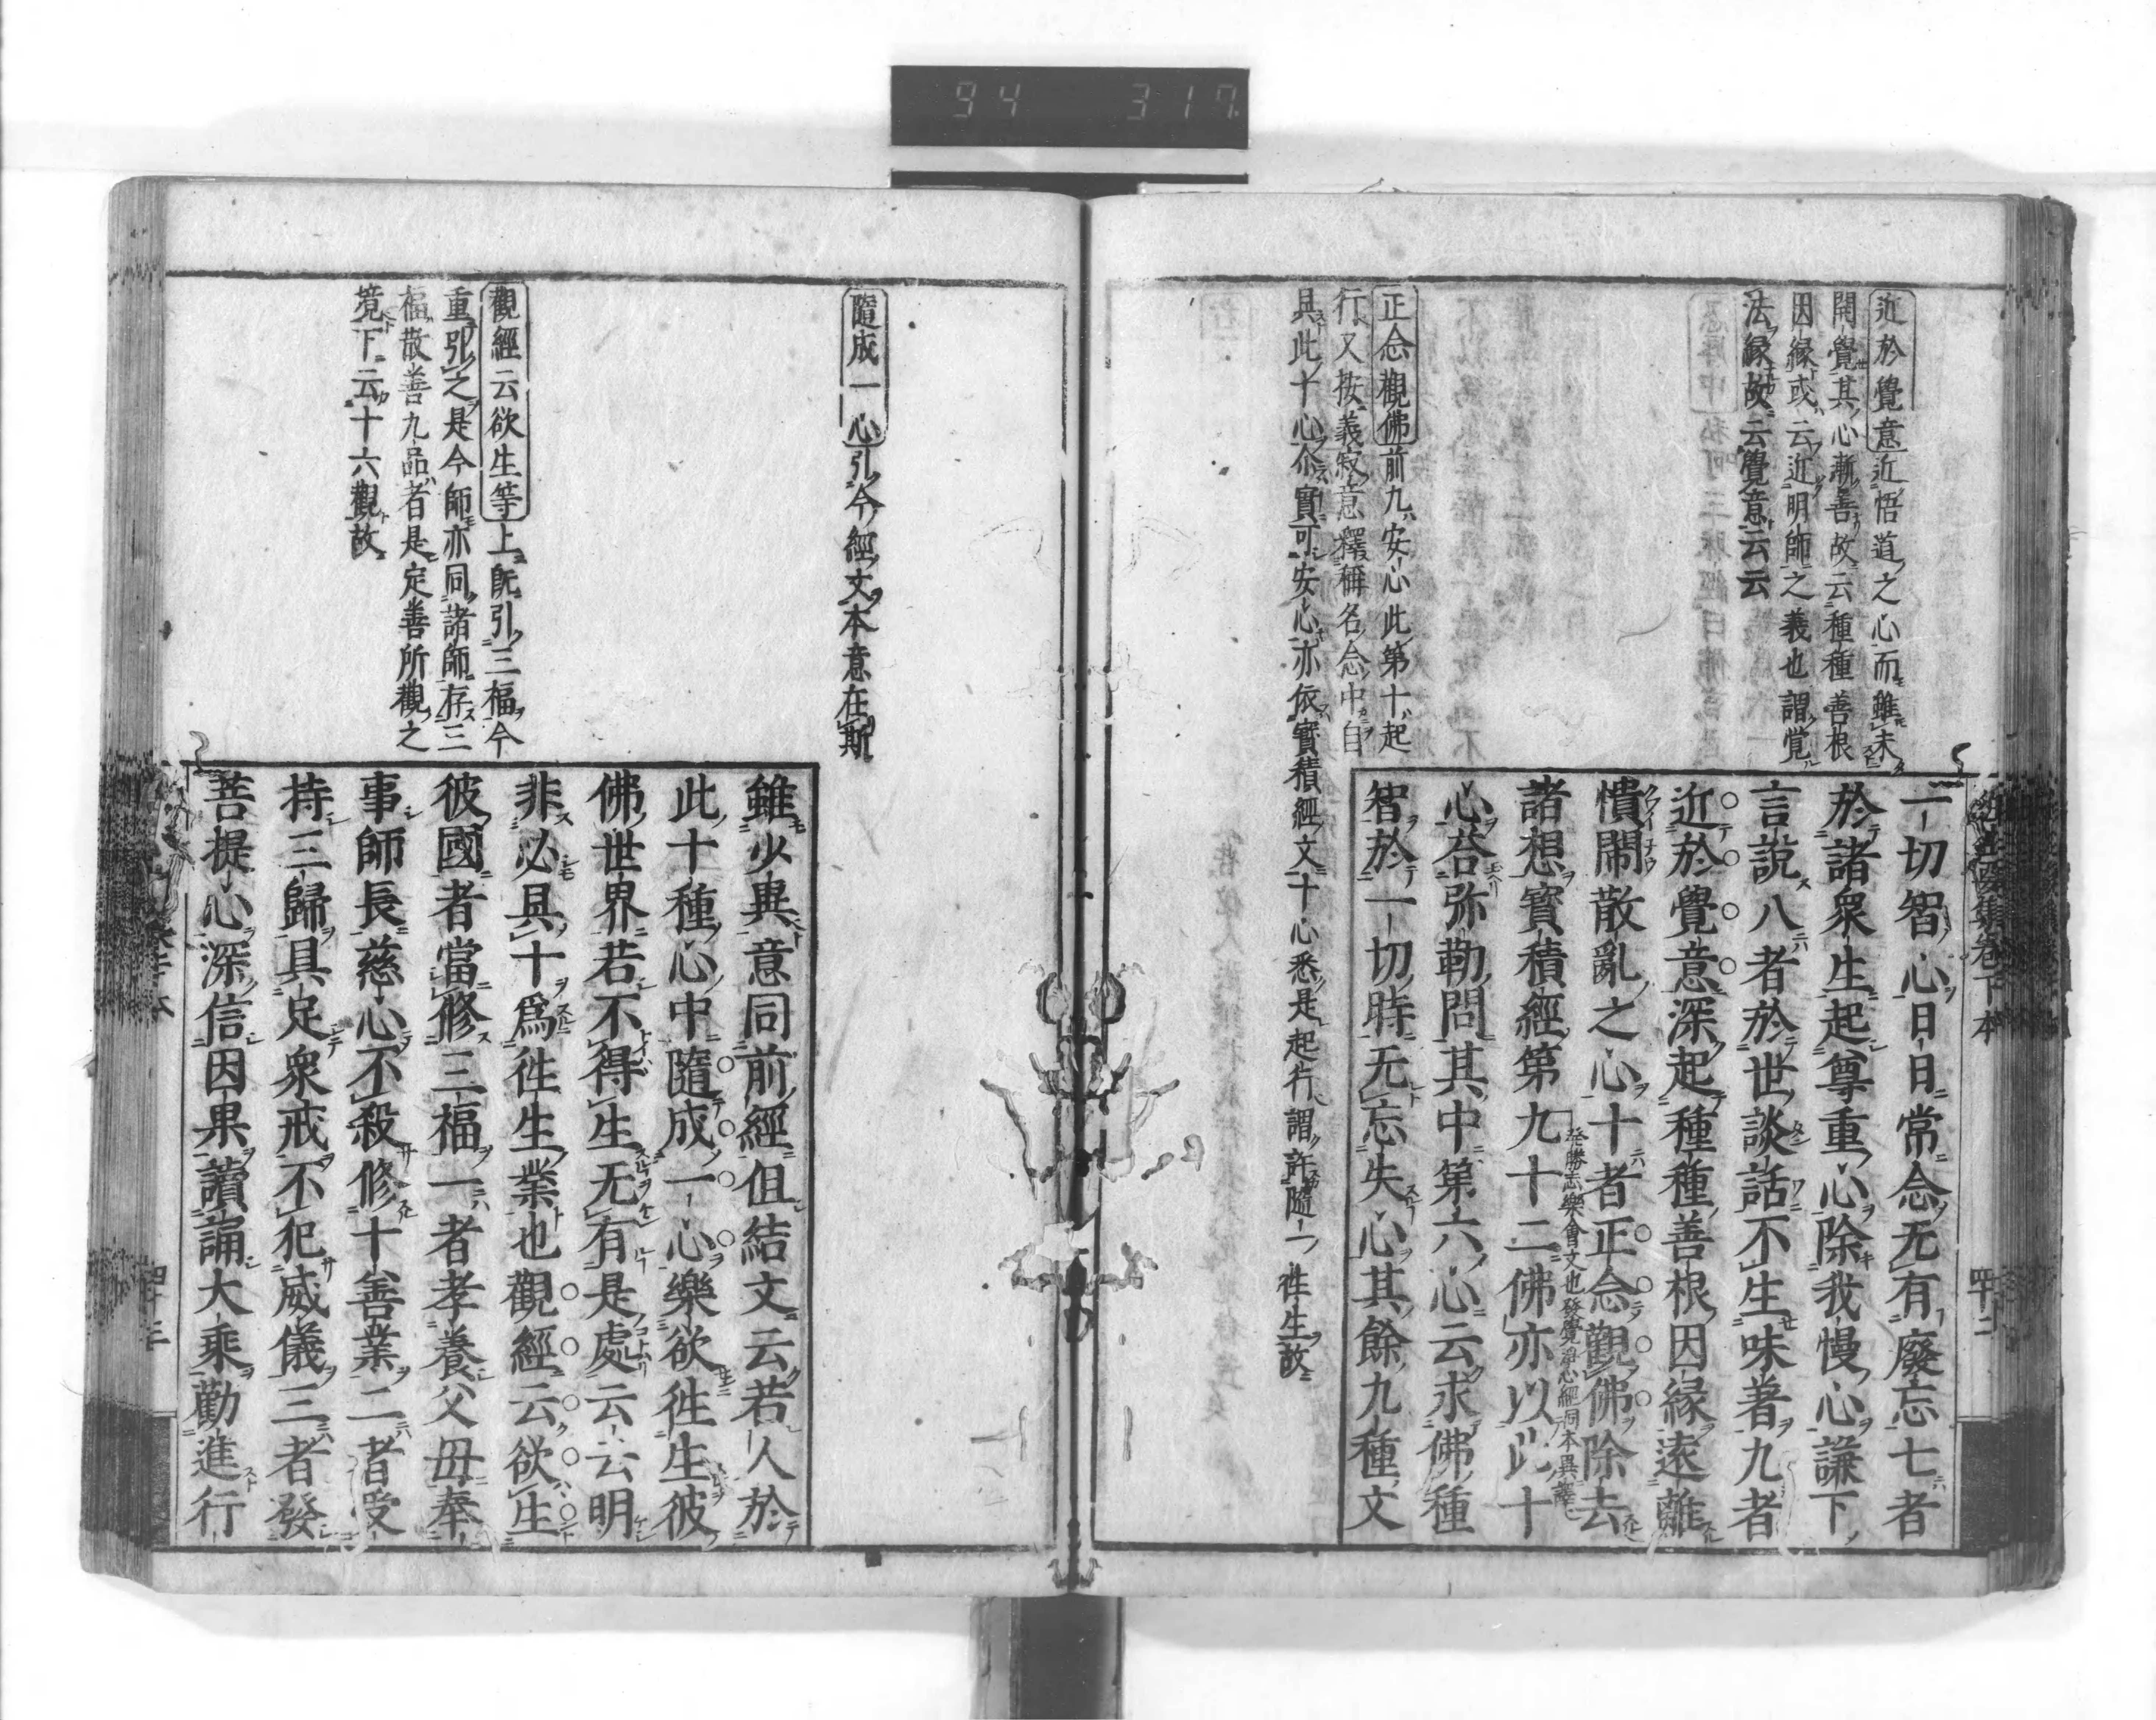 94 317
近於覺意近悟道之心而雖未
開覺其心漸善故云種種善根
因縁或云近明師之義也謂覚
法縁故云覺意云云
正念觀佛前九安心此第十起
行又按義寂意釋稱名念中自
具此十心尒實可安心亦依寳積經文十心悉是起行謂許隨一徃生故
一切智心日日常念无有廢忘七者
於諸衆生起尊重心除我慢心謙下
言說八者於世談話不生味著九者
近於覺意深起種種善根因縁遠離
憒閙散亂之心十者正念觀佛除去
諸想寳積經第九十二佛亦以此十
發勝志樂會文也發覺淨心經同本異譯也
心荅弥勒問其中第六心云求佛種
智於一切時无忘失心其餘九種文
徃生要集卷下本
四十二
隨成一心引今經文本意在斯
觀經云欲生等上既引三福今
重引之是今師亦同諸師存三
福散善九品者是定善所觀之
境下云十六觀故
雖少異意同前經但結文云若人於
此十種心中隨成一心樂欲徃生彼
佛世界若不得生无有是處云云明
非必具十爲徃生業也觀經云欲生
彼國者當修三福一者孝養父母奉
事師長慈心不殺修十善業二者受
持三歸具足衆戒不犯威儀三者發
菩提心深信因果讀誦大乘勸進行
四十三